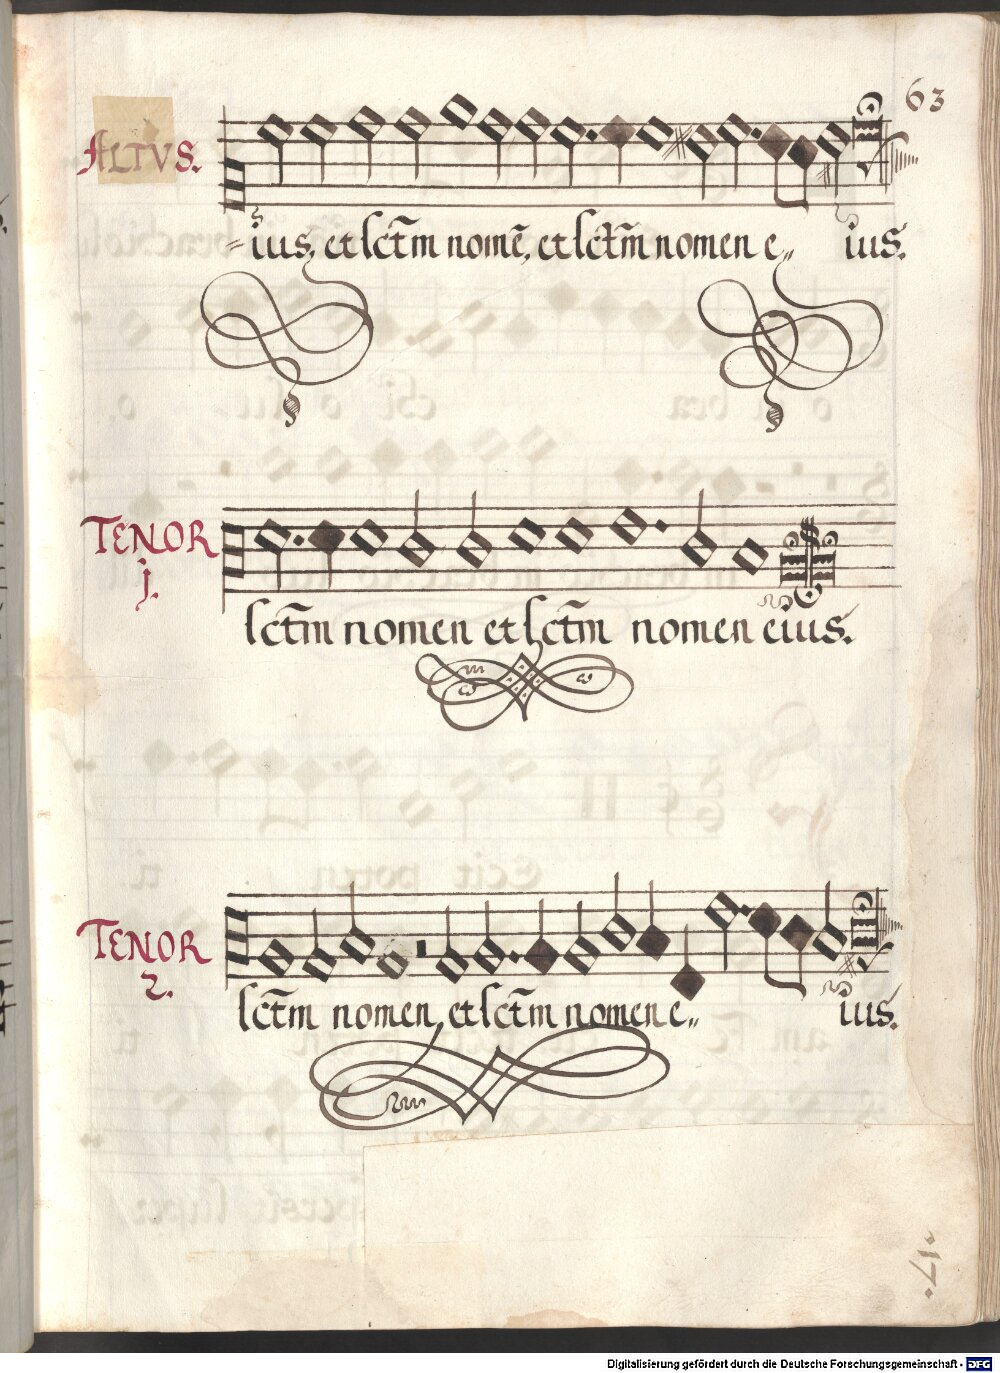 63
ALTVS.
ius, et sctm̄ nomē, et sctm̄ nomen e,, ius.
TENOR
j.
sctm̄ nomen et sctm̄ nomen eius.
TENOR
2.
sctm̄ nomen, et sctm̄ nomen e,, ius.
.17.
Digitalisierung gefördert durch die Deutsche Forschungsgemeinschaft - DFG